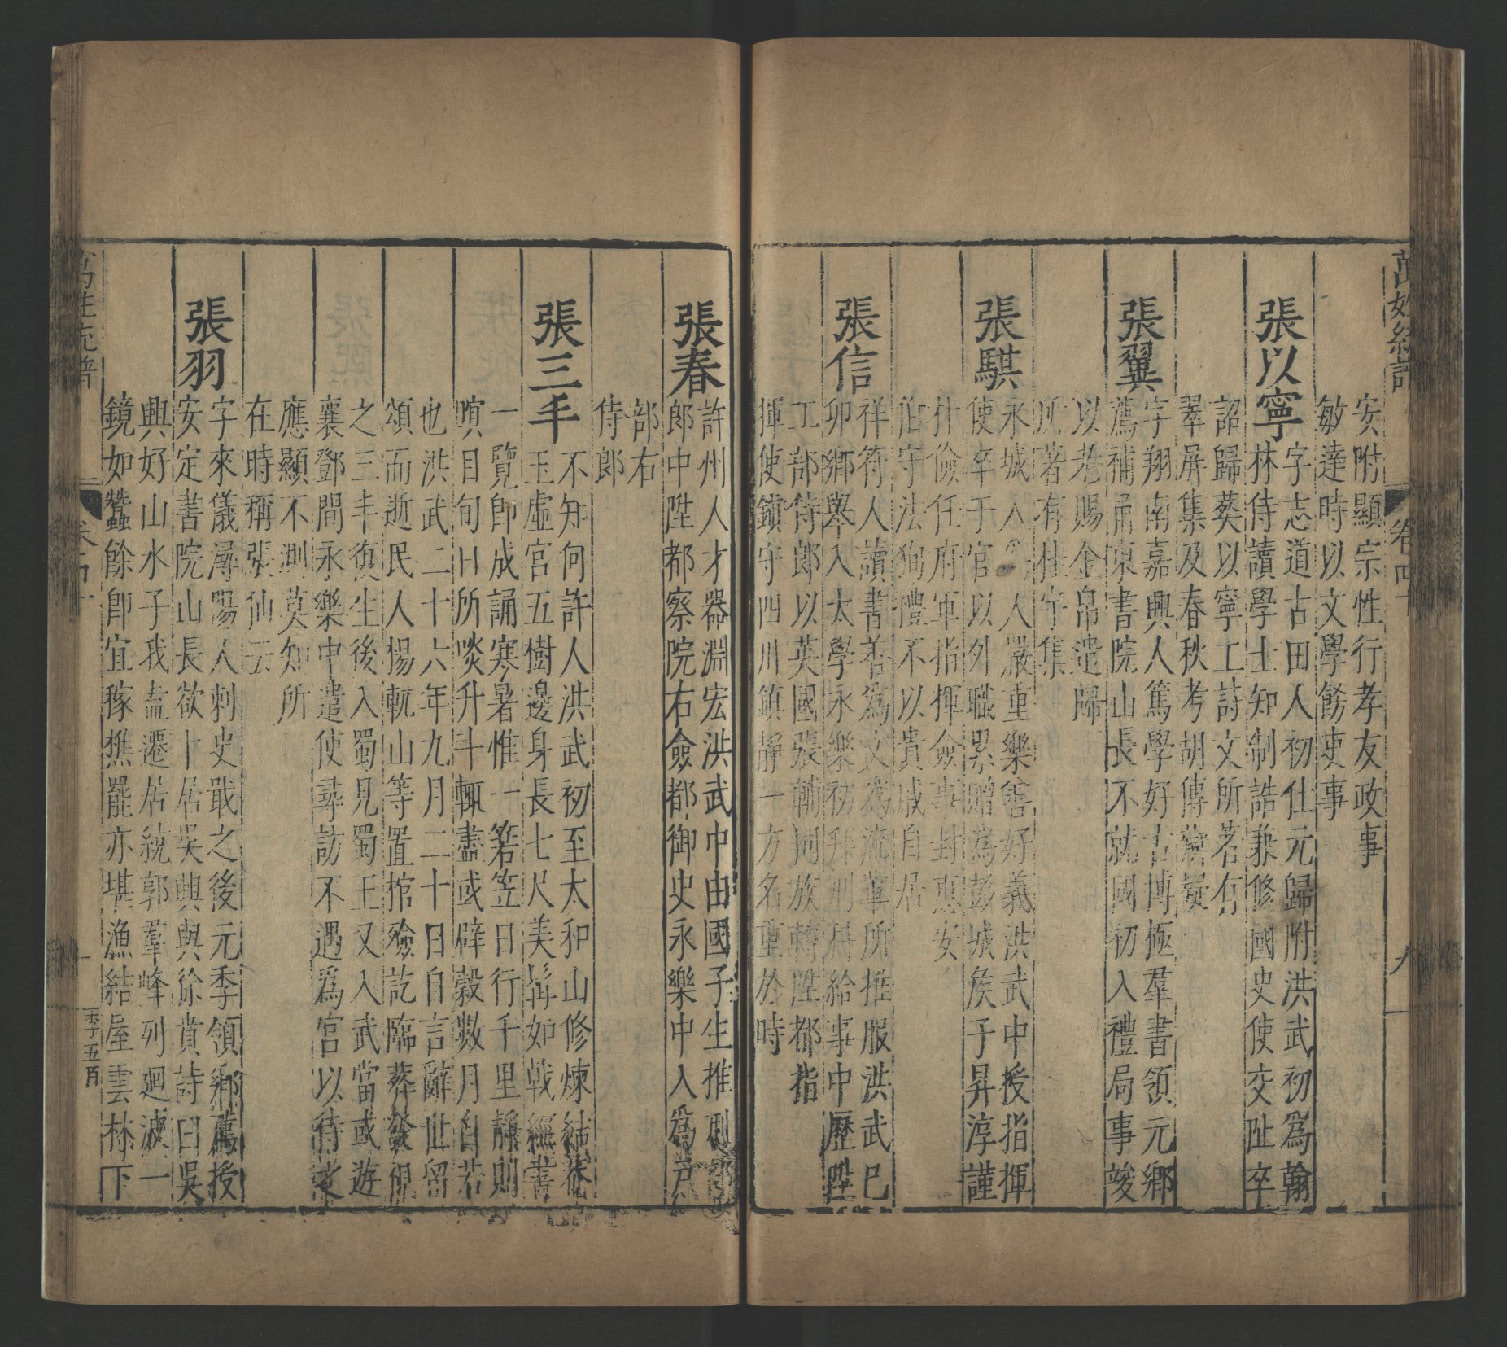 萬姓統譜
卷四十
九
安附顯宗性行孝友政事
敏達時以文學飭吏事
張以寧
字志道古田人初仕元歸附洪武初爲翰
林侍讀學士知制誥兼修國史使交趾卒
詔歸葬以寧工詩文所著有
翠屏集及春秋考胡傳辯疑
張翼
字翔南嘉興人篤學好古博極羣書領元鄉
薦補甫東書院山長不就國初入禮局事竣
以老賜金帛遣歸
所著有杜宇集
張騏
永城人爲人嚴重樂善好義洪武中授指揮
使卒于官以外職累贈爲彭城侯子昇淳謹
仕儉任府軍指揮僉事封惠安
伯守法循禮不以貴戚自居
張信
祥符人讀書善爲文爲流輩所推服洪武己
卯鄉舉入太學永樂初升刑科給事中歷陞
工部侍郎以英國張輔同族轉陞都指
揮使鎮守四川鎮靜一方名重於時
張春
許州人才器淵宏洪武中由國子生推刑
郎中陞都察院右僉都御史永樂中入爲戶
部右
侍郎
張三丰
不知何許人洪武初至太和山修煉結菴
玉虛宮五樹邊身長七尺美髯如戟經書
一覽即成誦寒暑惟一箬笠日行千里靜則
瞑目旬日所啖升斗輒盡或辟穀數月自若
也洪武二十六年九月二十日自言辭世留
頌而逝民人楊軌山等置棺殮訖臨葬發視
之三丰復生後入蜀見蜀王又入武當或遊
襄鄧間永樂中遣使尋訪不遇爲宮以待之
應顯不測莫知所
在時稱張仙云
張羽
字來儀潯陽人刺史戢之後元季領鄉薦授
安定書院山長欲卜居吳興與徐賁詩曰吳
興好山水子我盍遷居繞郭羣峰列廻波一
鏡如蠶餘即宜稼樵罷亦堪漁結屋雲林下
萬姓統譜
卷四十